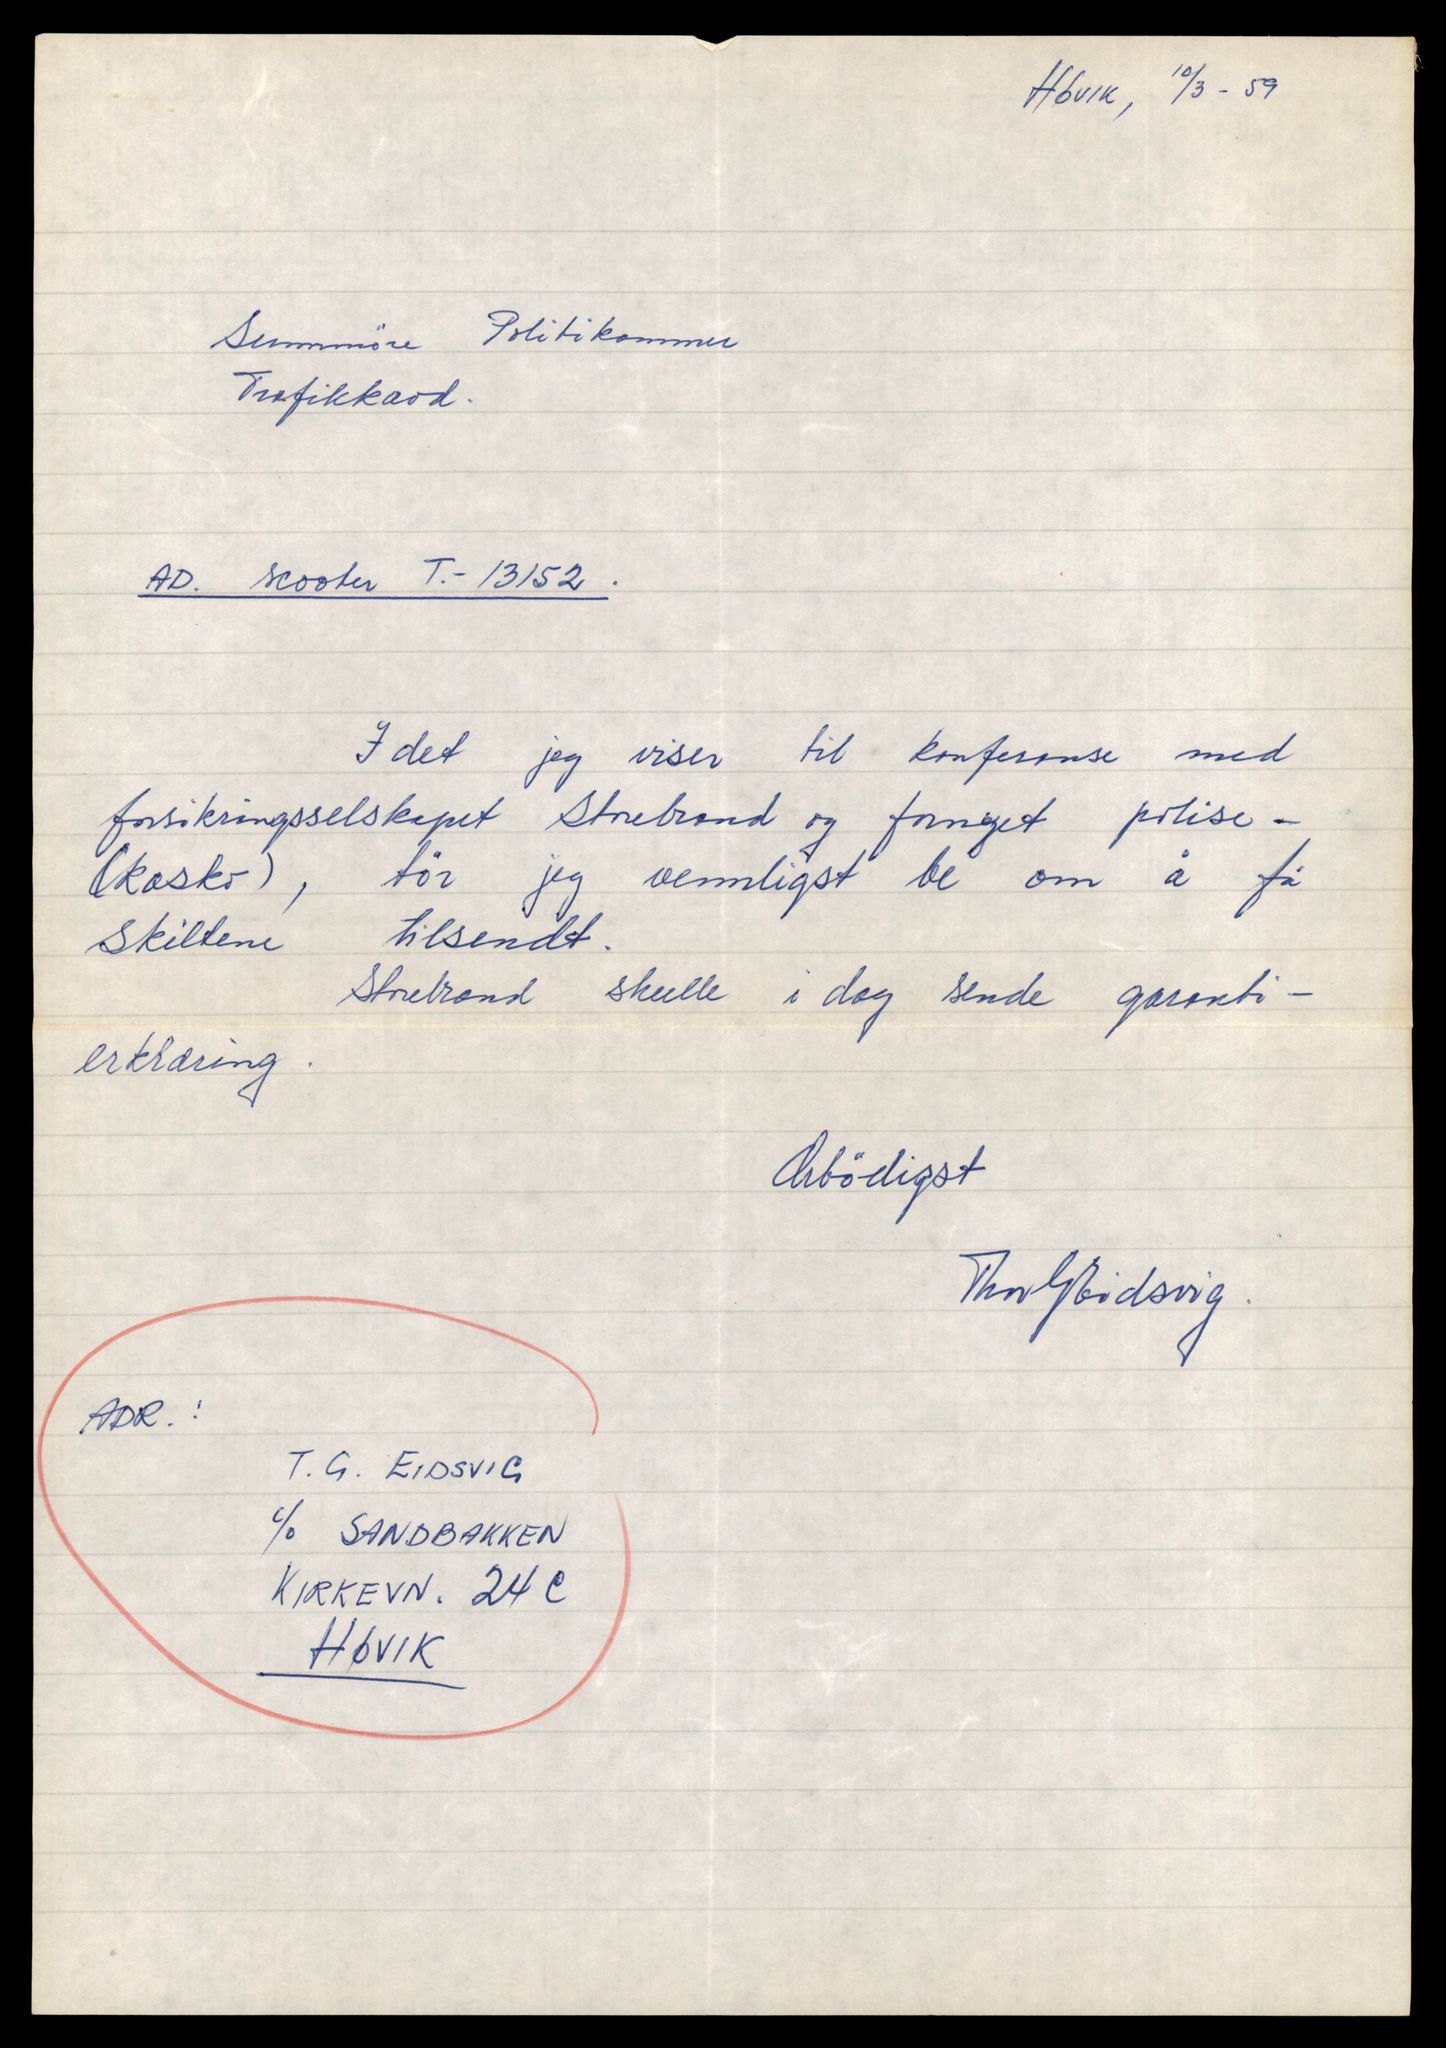 Høvik, 10/3 - 59
Sunnmöre Politikammer
Trafikkavd.
AD. scooter T.- 13152.
I det jeg viser til konferanse med
forsikringsselskapet Storebrand og fornyet polise -
(kasko), tör jeg vennligst be om å få
skiltene tilsendt.
Storebrand skulle i dag sende garanti -
erklæring.
Ærbödigst
Thor G Eidsvig.
ADR. :
T. G. EIDSVIG
c/o SANDBAKKEN
KIRKEVN. 24 C
HØVIK